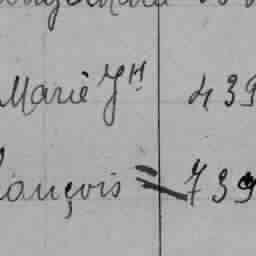 Marie JH 439
ançois = 739